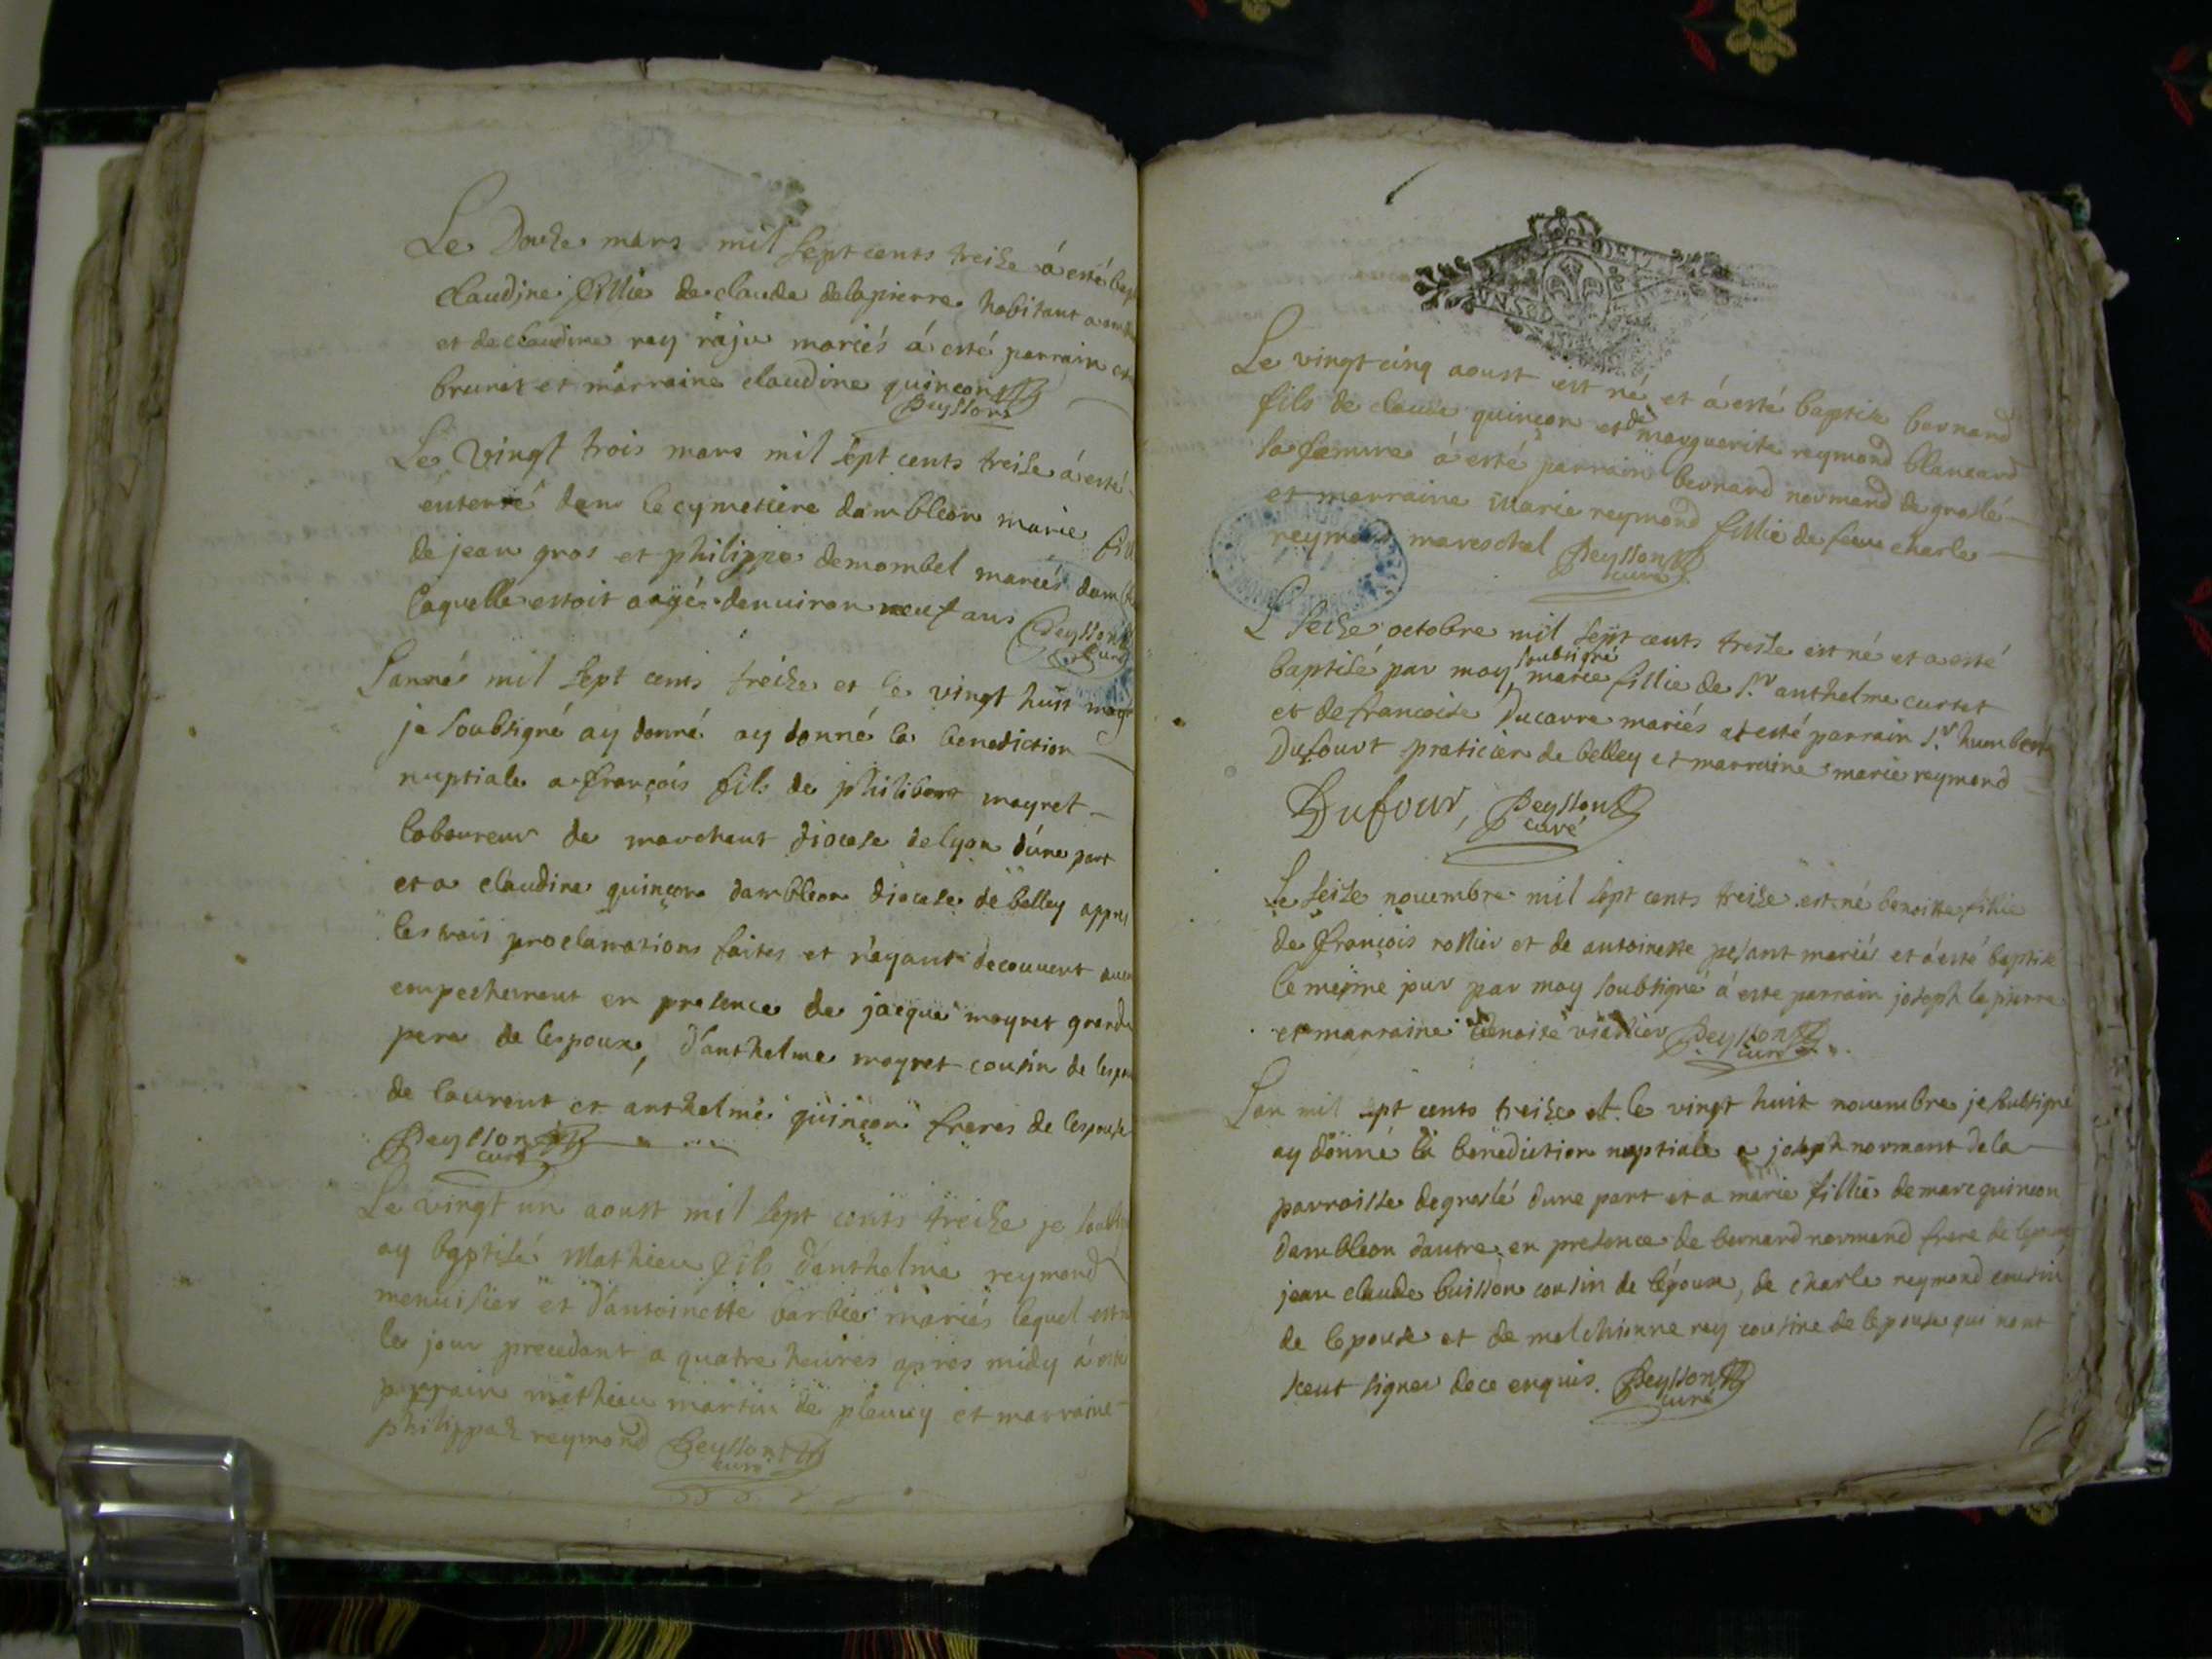 Le Douze mars mil sept cents treize á esté bap
claudine fillie de claude delapierre habitant a
et de claudine rey raju mariés á esté parrain
brunet et marraine claudine quinçon
Peysson
Le Vingt trois mars mil sept cents treize á esté
enterré dans le cymetiere dambleon marie fill
de jean gros et philippe demombel mariés damb
laquelle estoit aagé denuiron neuf ans Peysson
curé
Lanné mil sept cents treize et le vingt huit may
je soubsigné ay donné ay donné la benediction
nuptiale a françois fils de philibert mayret
laboureur de marchant diocese de lyon dúne part
et a claudine quinçon dambleon diocese de belley apprs
les trois proclamations faites et nayant decouuert aucu
empechement en presence de jacque mayret grand
pere de lespoux, d'anthelme mayret cousin de lespou
de laurent et anthelme quinçon freres de lespouse
Peysson
curé
Le vingt un aoust mil sept cents treize je soubs
ay baptisé Mathieu fils danthelme reymond
menuisier et d'antoinette barbier mariés lequel est n
le jour precedant a quatre heures apres midy á esté
parrain mathieu martin de pleuuy et marraine
philippaz reymond Peysson
curé
DE
UN SOL
Le vingt cinq aoust est né et á esté baptise bernand
fils de claude quinçon et de marguerite reymond blancard
sa femme á esté parrain bernard normand de groslé
et marraine marie reymond fillie de feu charle
reymond mareschal Peysson
curé
Le seize octobre mil sept cents treise est né et a esté
baptisé par moy soubsigné marie fillie de Sr anthelme curtet
et de francoise Ducarre mariés at esté parrain Sr humbert
Dufourt praticien de belley et marraine marie reymond
Dufour, Peysson
curé
Le seize nouembre mil sept cents treize est né benoitte fillie
de françois rollier et de antoinette pesant mariés et á esté baptise
le meyme jour par moy soubsigné á este parrain joseph la pierre
et marraine benoite viallier Peysson
curé
Lan mil sept cents treize et le vingt huit nouembre je subsigné
ay donné la benediction nuptiale a joseph normant de la
parroisse de groslé dune part et a marie fillie de marc quincon
dambleon dautre en presence de bernard normand frere de lepoux
jean claude buisson cousin de lépoux, de charle reymond cousin
de lepouse et de melchionne rey cousine de lepouse qui nont
sceut signer de ce enquis. Peysson
curé